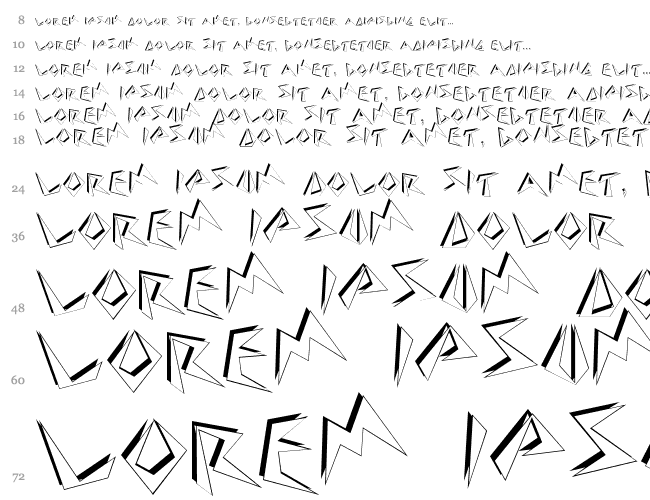 8 LOREM IPSUM DOLOR SIT AMET, CONSECTETUER ADIPISCING ELIT...
10 LOREM IPSUM DOLOR SIT AMET, CONSECTETUER ADIPISCING ELIT...
12 LOREM IPSUM DOLOR SIT AMET, CONSECTETUER ADIPISCING ELIT...
14 LOREM IPSUM DOLOR SIT AMET, CONSECTETUER ADIPISC
16 LOREM IPSUM DOLOR SIT AMET, CONSECTETUER AD
18 LOREM IPSUM DOLOR SIT AMET, CONSECTET
24 LOREM IPSUM DOLOR SIT AMET,
36 LOREM IPSUM DOLOR
48 LOREM IPSUM DO
60 LOREM IPSUM
72 LOREM IPS